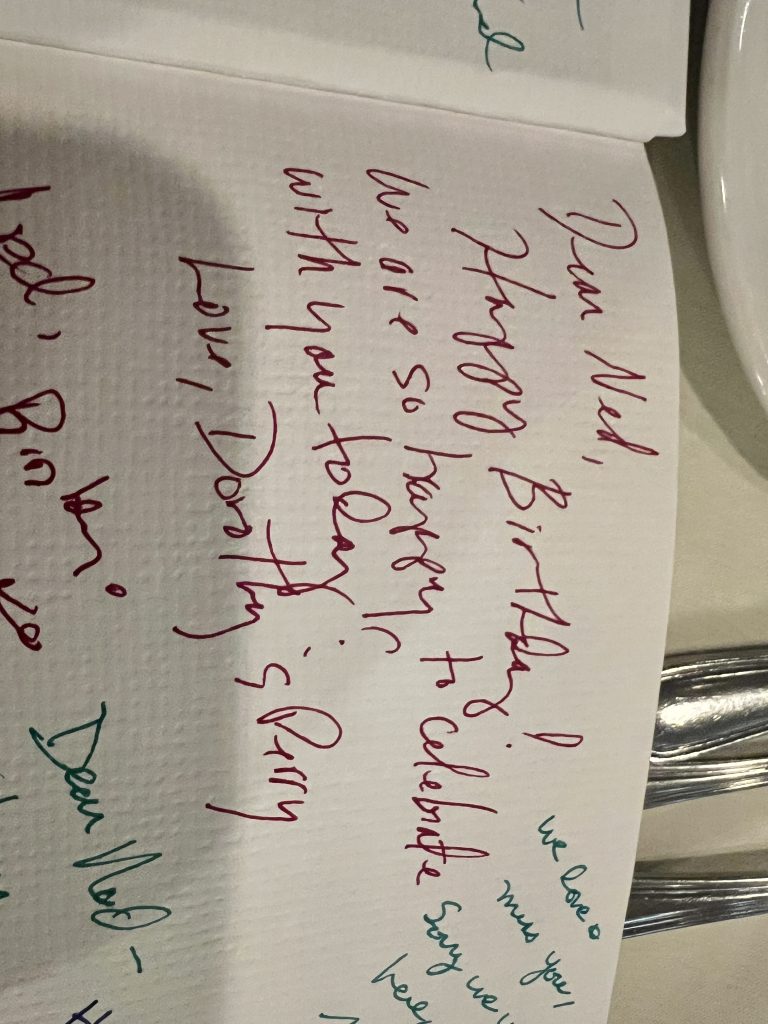 Dear Ned,
Happy Birthday!
We are so happy to celebrate
with you today!
Love, Dorothy & Perry
we love &
miss you,
Sorry we
here
Dear Ned -